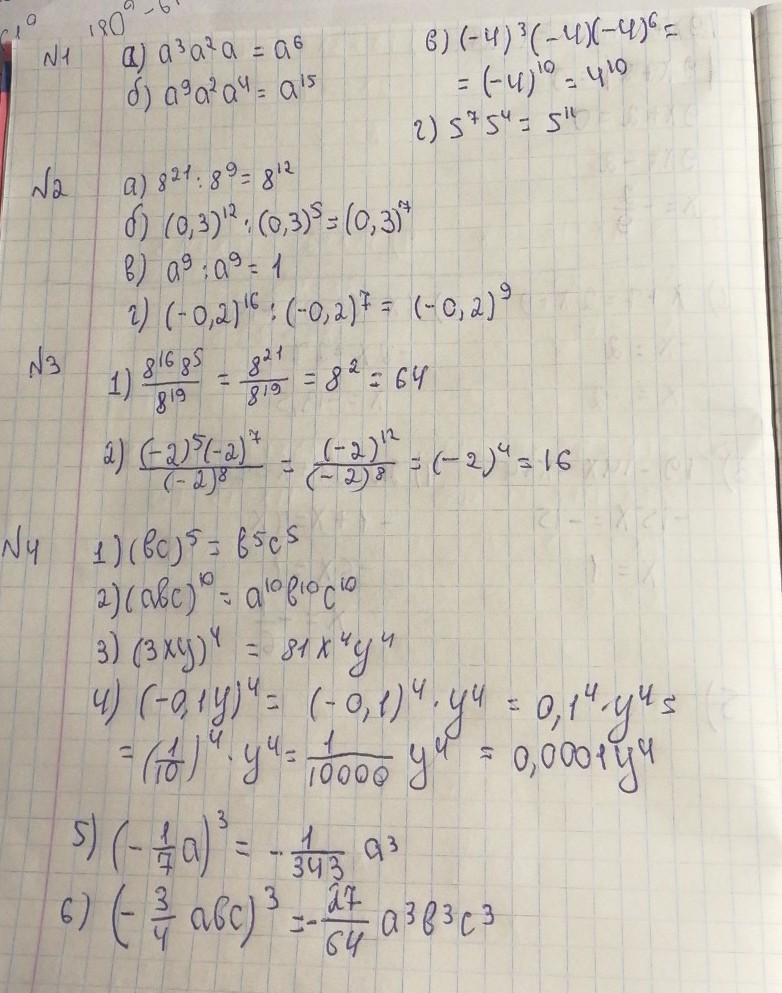 180° - 6
№1 а) a³a²a = a⁶
б) a⁹a²a⁴ = a¹⁵
в) (-4)³(-4)(-4)⁶ =
= (-4)¹⁰ = 4¹⁰
г) 5⁷5⁴ = 5¹¹
№2 а) 8²¹ : 8⁹ = 8¹²
б) (0,3)¹² : (0,3)⁵ = (0,3)⁷
в) a⁹ : a⁹ = 1
г) (-0,2)¹⁶ : (-0,2)⁷ = (-0,2)⁹
№3 1) 8¹⁶8⁵/8¹⁹ = 8²¹/8¹⁹ = 8² = 64
2) (-2)⁵(-2)⁷/(-2)⁸ = (-2)¹²/(-2)⁸ = (-2)⁴ = 16
№4 1) (bc)⁵ = b⁵c⁵
2) (abc)¹⁰ = a¹⁰b¹⁰c¹⁰
3) (3xy)⁴ = 81x⁴y⁴
4) (-0,1y)⁴ = (-0,1)⁴ · y⁴ = 0,1⁴ · y⁴ =
= (1/10)⁴ · y⁴ = 1/10000 y⁴ = 0,0001y⁴
5) (-1/7 a)³ = -1/343 a³
6) (-3/4 abc)³ = -27/64 a³b³c³